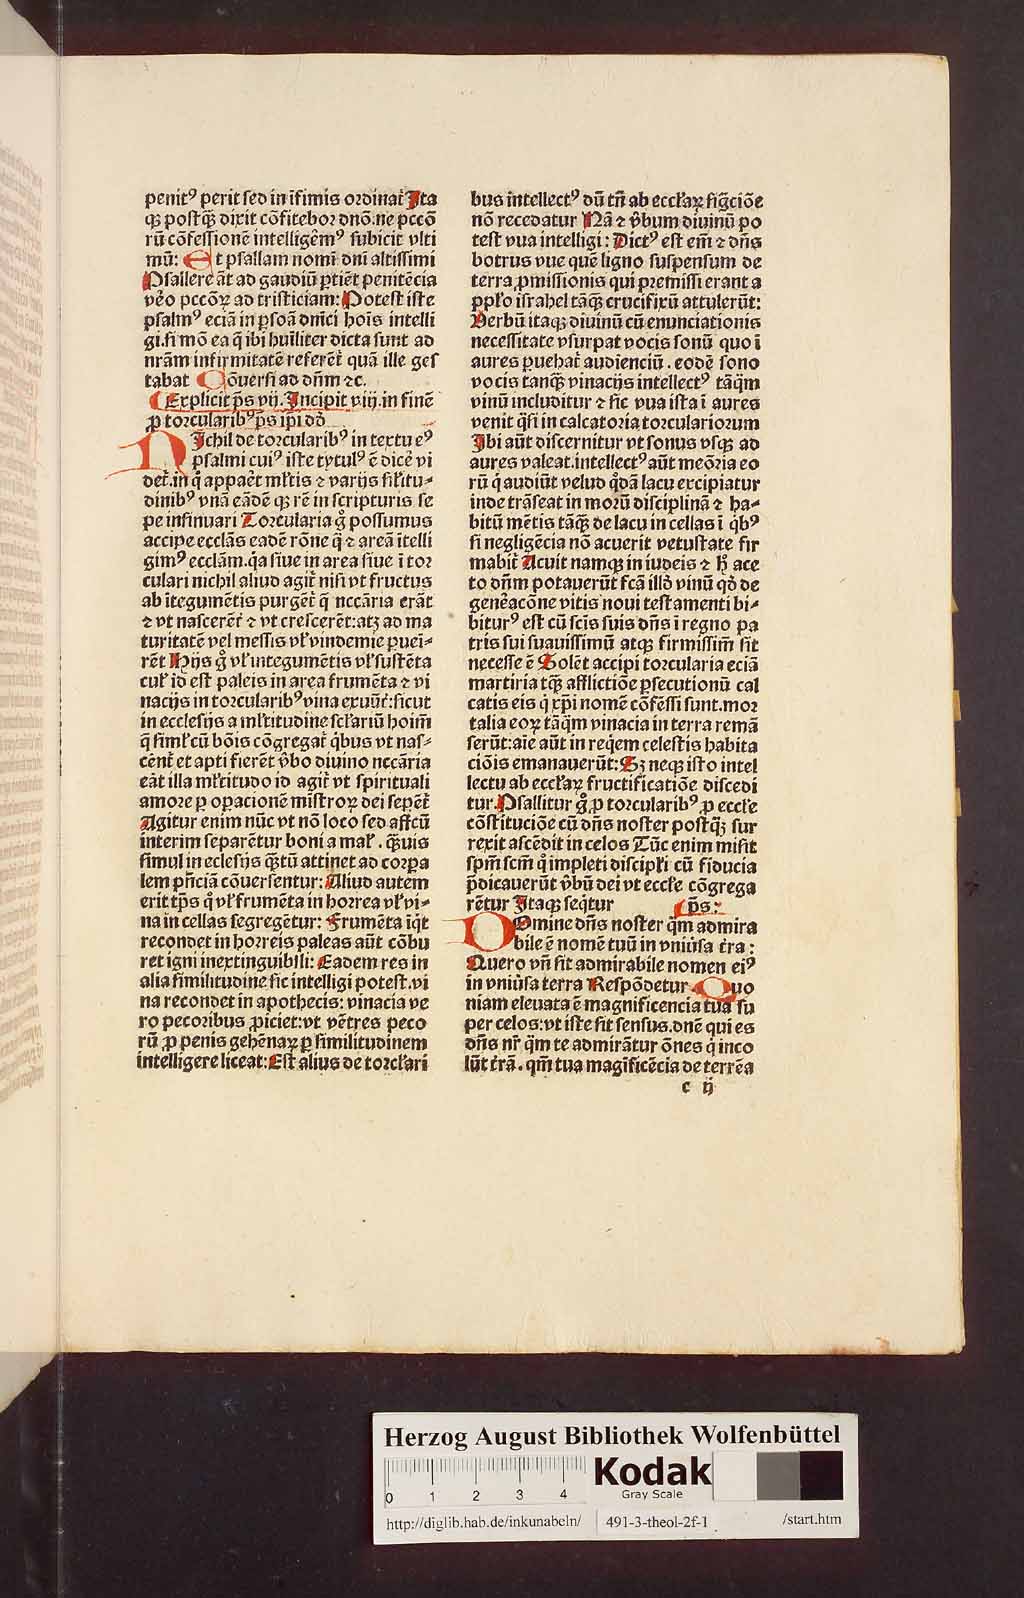 penitꝰ perit sed in īfimis ordinat᷑ Ita
qꝫ postq̄ꝫ dixit cōfitebor dnō. ne pccō
rū cōfessionē intelligēmꝰ subicit vlti
mū: Et psallam nomī dnī altissimi
Psallere āt ad gaudiū ꝑtiēt penitēcia
vēo pccōꝝ ad tristiciam: Potest iste
psalmꝰ eciā in ꝑsoā dnīci hoīs intelli
gi. si mō ea q̄ ibi hūiliter dicta sunt ad
nrām infirmitatē referēt᷑ quā ille ges
tabat Cōuersi ad dn̄m ⁊c.
Explicit p̄s vij. Incipit viij. in finē
ꝓ torcularibꝰ p̄s ip̄i dō
Nichil de torcularibꝰ in textu eꝰ
psalmi cuiꝰ iste tytulꝰ ē dicē vi
det᷑. in q̊ appaēt ml̄tis ⁊ varijs sil̄itu⸗
dinibꝰ vnā eādē qꝫ rē in scripturis se
pe insinuari Torcularia g̊ possumus
accipe ecclās eadē rōne q̄ ⁊ areā ītelli
gimꝰ ecclām. q̄a siue in area siue ī tor
culari nichil aliud agit᷑ nisi vt fructus
ab ītegumētis purgēt᷑ q̄ nccāria erāt
⁊ vt nascerēt᷑ ⁊ vt crescerēt: atꝫ ad ma
turitatē vel messis vl̄ vindemie ꝑuei⸗
rēt Hijs g̊ vl̄ integumētis vl̄ sustēta
cul̄ id est paleis in area frumēta ⁊ vi
nacijs in torcularibꝰ vina exuūt᷑: sicut
in ecclesijs a ml̄titudine scl̄ariū hoim̄
q̄ siml̄ cū bōis cōgregat᷑ q̄bus vt nas⸗
cēnt᷑ et apti fierēt v̄bo diuino nccāria
eāt illa ml̄titudo id agit᷑ vt spirituali
amore ꝑ oꝑacionē mīstroꝝ dei seꝑēt᷑
Agitur enim nūc vt nō loco sed affcū
interim separētur boni a mal̄. q̄ꝫuis
simul in eclesijs q̄ꝫtū attinet ad corꝑa
lem pn̄ciā cōuersentur: Aliud autem
erit tp̄s q̊ vl̄ frumēta in horrea vl̄ vi⸗
na in cellas segregētur: Frumēta īq̄t
recondet in horreis paleas aūt cōbu
ret igni inextinguibili: Eadem res in
alia similitudine sic intelligi potest. vi
na recondet in apothecis: vinacia ve
ro pecoribus ꝓiciet: vt vētres peco
rū ꝓ penis gehēnaꝝ ꝑ similitudinem
intelligere liceat: Est alius de torcl̄ari
bus intellectꝰ dū tn̄ ab eccl̄aꝝ sigc̄iōe
nō recedatur Nā ⁊ v̄bum diuinū po
test vua intelligi: Dictꝰ est em̄ ⁊ dn̄s
botrus vue quē ligno suspensum de
terra ꝓmissionis qui p̄missi erant a
ppl̄o israhel tāqꝫ crucifixū attulerūt:
Verbū itaqꝫ diuinū cū enunciationis
necessitate vsurpat vocis sonū quo ī
aures ꝑuehat᷑ audienciū. eodē sono
vocis tanqꝫ vinacijs intellectꝰ tāq̄m
vinū includitur ⁊ sic vua ista ī aures
venit q̄si in calcatoria torculariorum
Ibi aūt discernitur vt sonus vsqꝫ ad
aures valeat. intellectꝰ aūt meōria eo
rū q̄ audiūt velud q̊dā lacu excipiatur
inde trāseat in morū disciplinā ⁊ ha⸗
bitū mētis tāqꝫ de lacu in cellas ī q̄bꝰ
si negligēcia nō acuerit vetustate fir
mabit᷑ Acuit namqꝫ in iudeis ⁊ h̊ ace
to dn̄m potauerūt scā illō vinū qd̄ de
genēacōne vitis noui testamenti bi⸗
biturꝰ est cū scīs suis dn̄s ī regno pa
tris sui suauissimū atqꝫ firmissim̄ sit
necesse ē Solēt accipi torcularia eciā
martiria tqꝫ afflictiōe ꝑsecutionū cal
catis eis q̄ xp̄i nomē cōfessi sunt. mor
talia eoꝝ tāq̄m vinacia in terra remā
serūt: aīe aūt in req̄em celestis habita
ciōis emanauerūt: Sꝫ neqꝫ isto intel
lectu ab eccl̄aꝝ fructificatiōe discedi
tur. Psallitur g̊ ꝓ torcularibꝰ ꝓ eccl̄e
cōstituciōe cū dn̄s noster postqꝫ sur
rexit ascēdit in celos Tūc enim misit
spm̄ scm̄ q̊ impleti discipl̄i cū fiducia
p̄dicauerūt v̄bū dei vt eccl̄e cōgrega
rētur Itaqꝫ seq̄tur p̄s:
Domine dn̄s noster q̄m admira
bile ē nomē tuū in vniūsa tr̄a:
Quero vn̄ sit admirabile nomen eiꝰ
in vniūsa terra Respōdetur Quo
niam eleuata ē magnificencia tua su
per celos: vt iste sit sensus. dnē qui es
dn̄s nr̄ q̄m te admirātur ōnes q̄ inco
lūt tr̄ā. qm̄ tua magificēcia de terrēa
c ij
Herzog August Bibliothek Wolfenbüttel
0 1 2 3 4
Kodak
Gray Scale
http://diglib.hab.de/inkunabeln/ 491-3-theol-2f-1 /start.htm